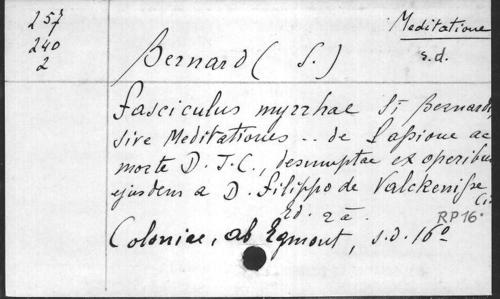 257
240
2
Meditatione
s.d.
Bernard ( S. )
Fasciculus myrrhae Sti Bernardi
sive Meditationes .. de Passione ac
morte D. J. C., desumptae ex operibus
ejusdem a D. Filippo de Valckenisse
Ed. 2a.
RP16.
Coloniae, ab Egmont, s.d. 16º